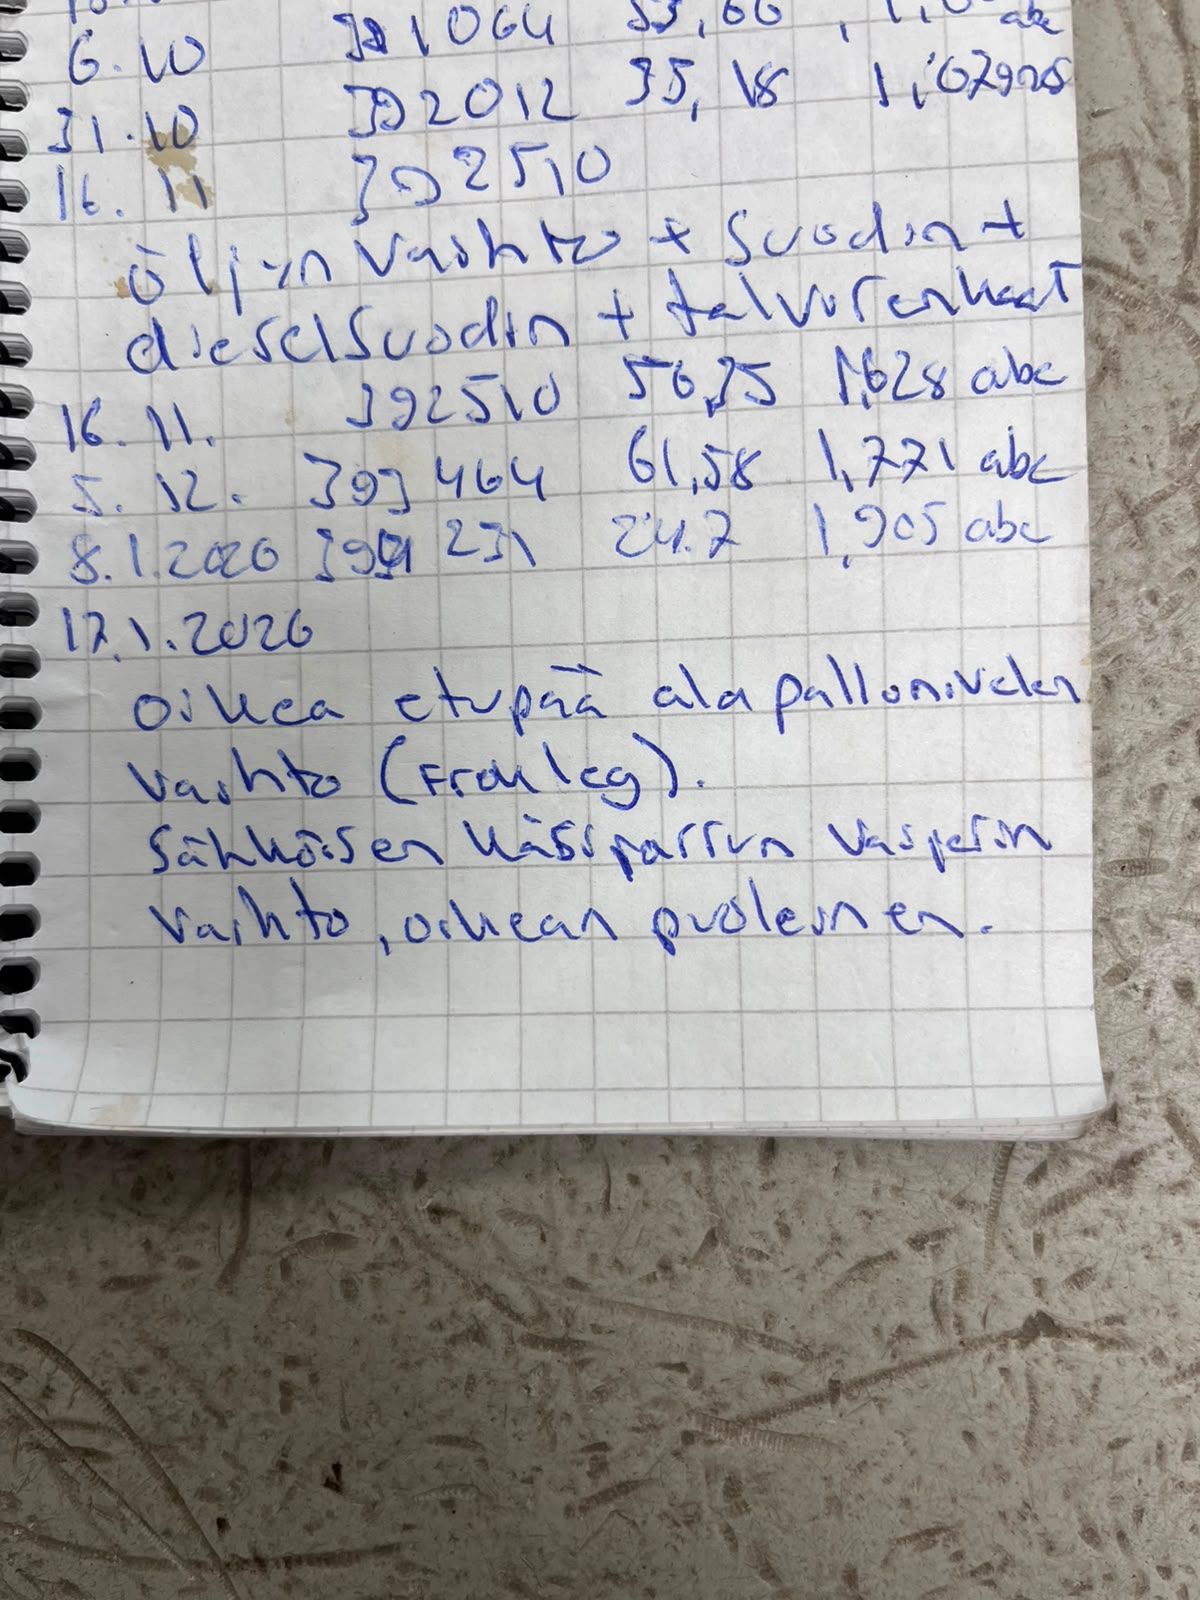 6.10 391064 53,66 abc
31.10 392012 35,18
16.11 392510
öljyn vaihto + suodin +
dieselsuodin + talvirenkaat
16.11. 392510 56,35 1,628 abc
5.12. 393464 61,58 1,771 abc
8.1.2026 394231 24.7 1,905 abc
17.1.2026
oikea etupää alapallonivelen
vaihto
Sähköisen käsiparrun vaijerin
vaihto, oikean puoleinen.